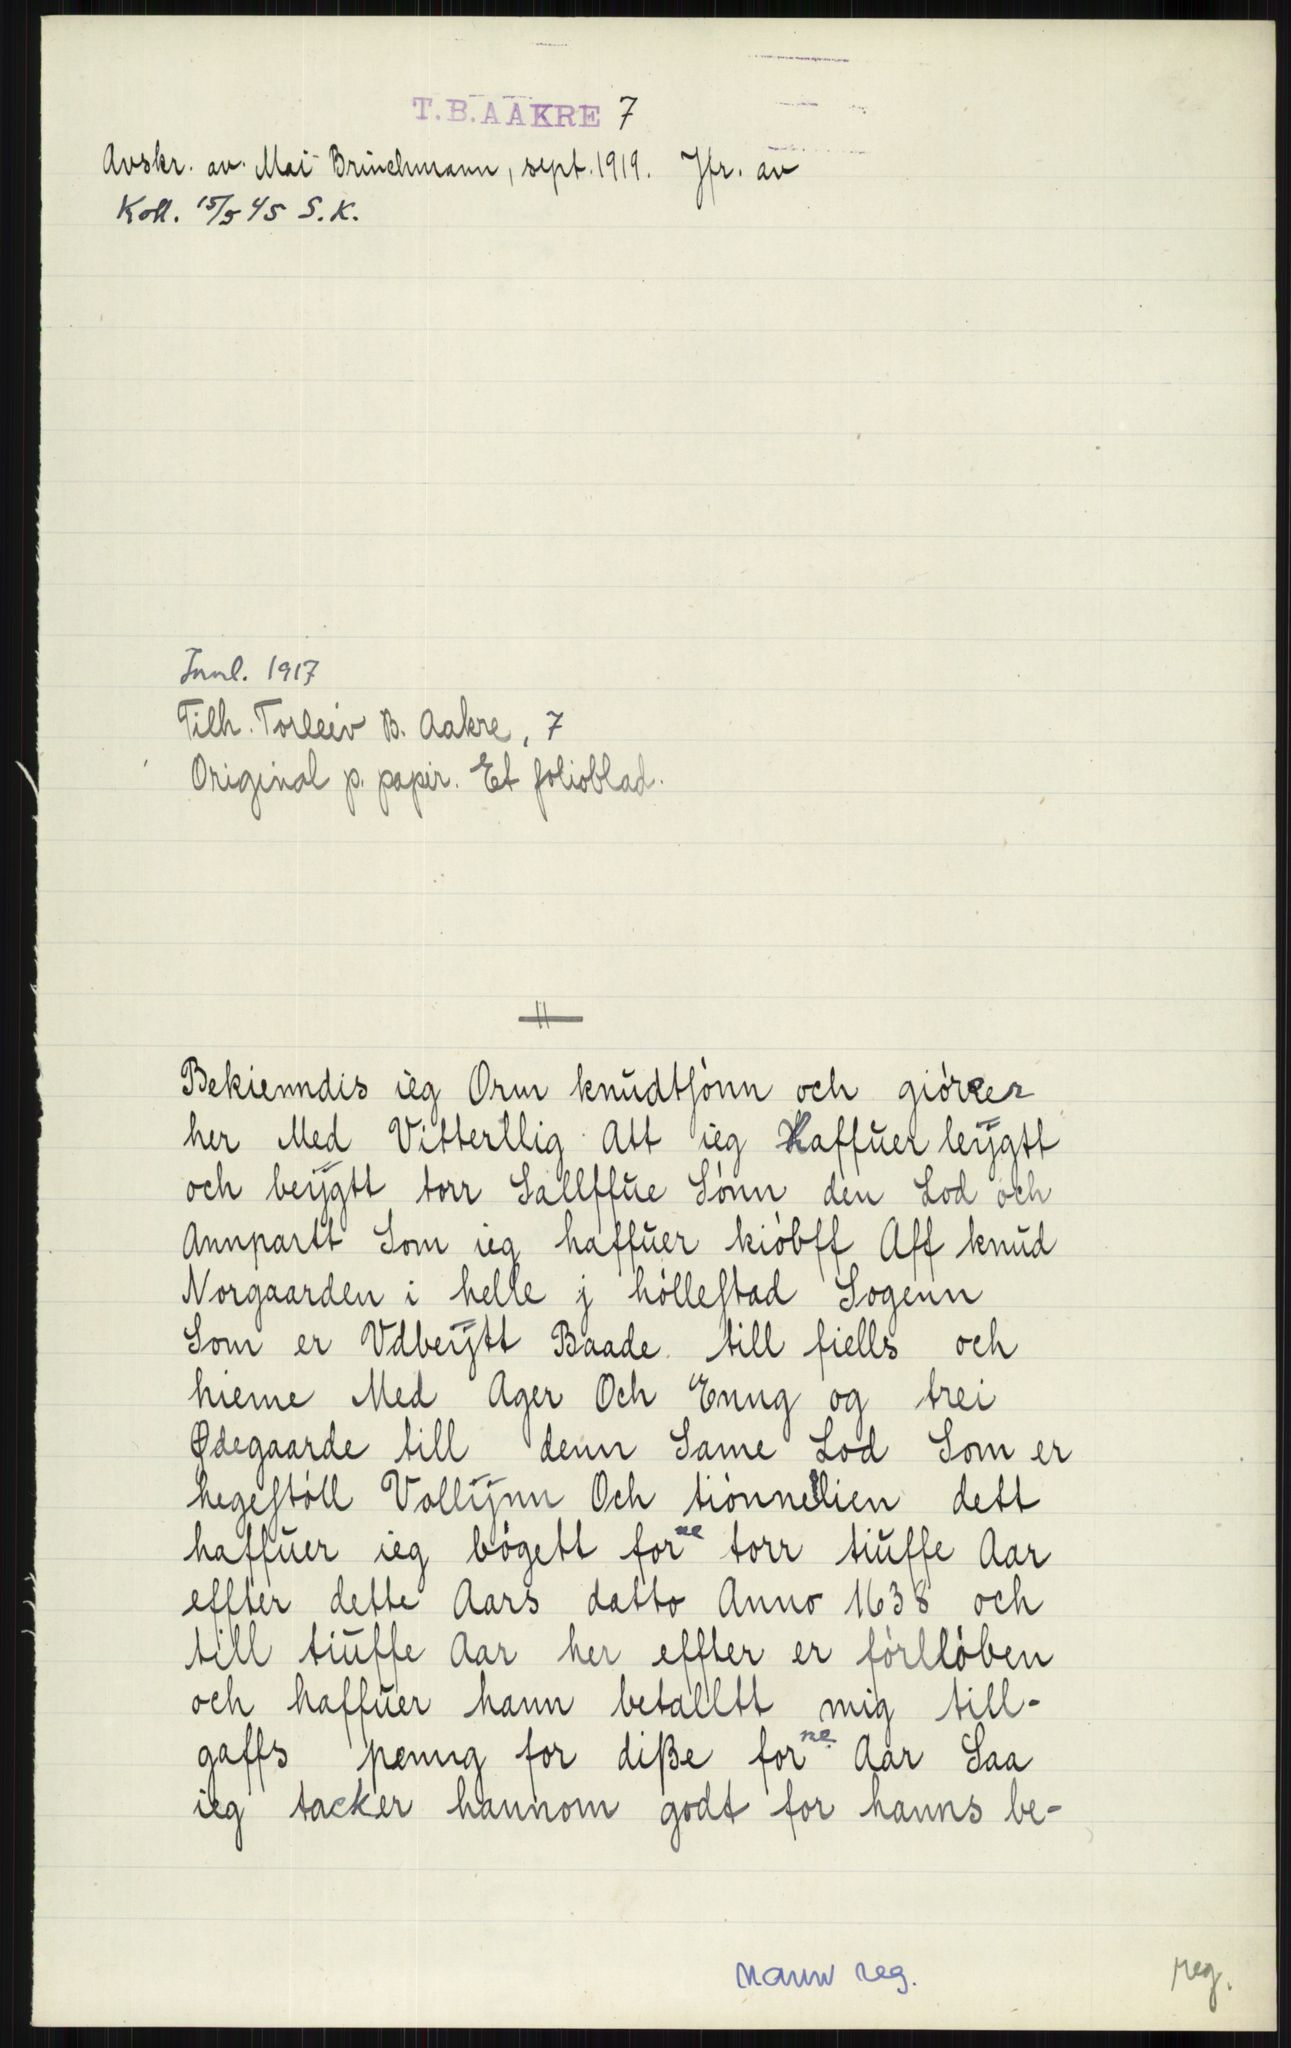 T.B. AAKRE 7
Avskr. av Mai Brinchmann, sept. 1919. Jfr. av
Koll. 15/5 45 S.K.
Innl. 1917
Tilh. Torleiv B. Aakre, 7
Original p. papir. Et folioblad.
Bekienndis ieg Orm knudtſønn och giører
her Med Vitterllig Att ieg Haffuer leÿgtt
och beÿgtt torr Sallffue Sønn den Lod och
Annpartt Som ieg haffuer kiøbff Aff knud
Norgaarden i helle j hølleſtad Sogenn
Som er Vdbeÿtt Baade till fiells och
hieme Med Ager Och Enng og trei
Ødegaarde till denn Same Lod Som er
hegeſtøll Vollÿnn Och tiønnelien dett
haffuer ieg bøgett forne torr tiuffe Aar
effter dette Aars datto Anno 1638 och
till tiuffe Aar her effter er førlløben
och haffuer hann betalltt mig till-
gaffs penng for diße forne Aar Saa
ieg tacker hannom godt for hanns be-
navn reg.
reg.